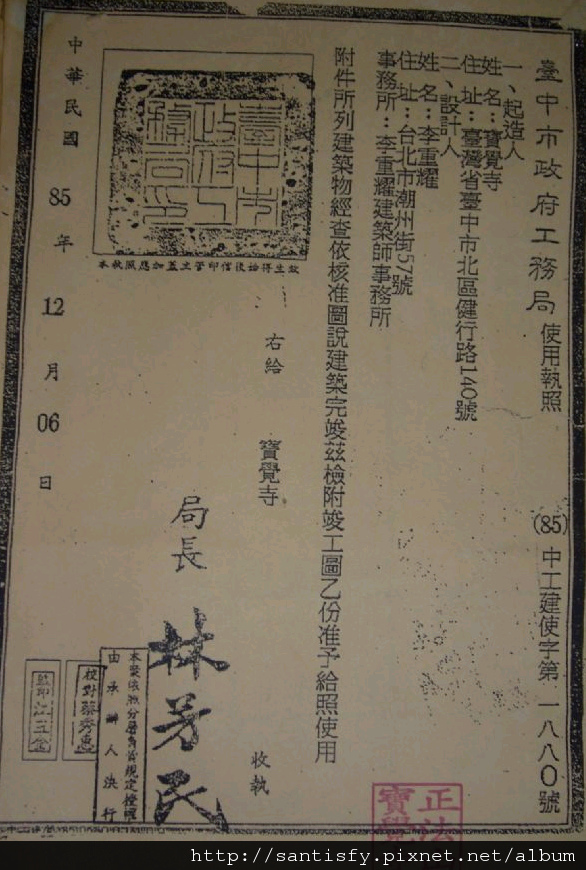 臺中市政府工務局使用執照 (85)中工建使字第一八八〇號
一、起造人
姓名：寶覺寺
住址：臺灣省臺中市北區健行路140號
二、設計人
姓名：李重耀
住址：台北市潮州街57號
事務所：李重耀建築師事務所
附件所列建築物經查依核准圖說建築完竣茲檢附竣工圖乙份准予給照使用
右給 寶覺寺 收執
本執照應加蓋主管印信後始得生效
臺中市政府工務局印
局長 林芳民
本案依照分層負責規定授權
由承辦人決行
校對蔡秀惠
中華民國85年12月06日
正法
寶覺
http://santisfy.pixnet.net/album